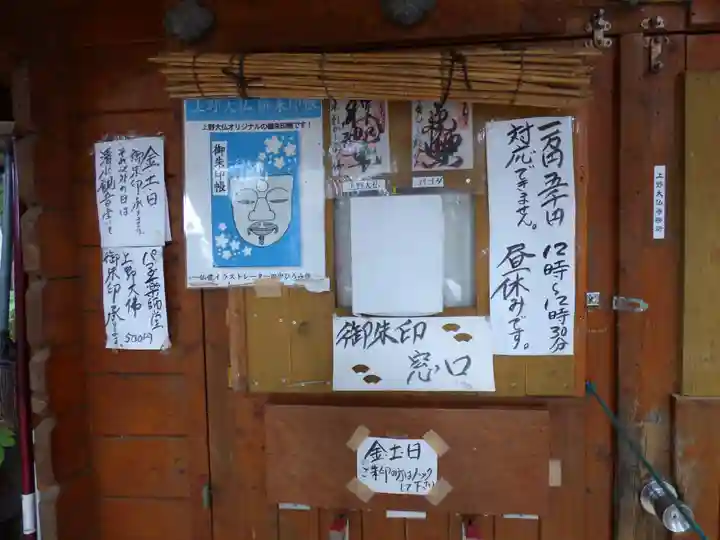 金土日
御朱印承ります。
それ以外の日は
清水観音堂にて
パゴダ薬師堂
上野大佛
御朱印承ります
500円
上野大仏 御朱印帳
上野大仏オリジナルの御朱印帳です！
御朱印帳
仏像イラストレーター田中ひろみ作
上野大仏
パゴダ
一万円 五千円
対応できません。
12時〜12時30分
昼休みです。
御朱印
窓口
上野大仏寺務所
金土日
ご朱印の方はノック
して下さい